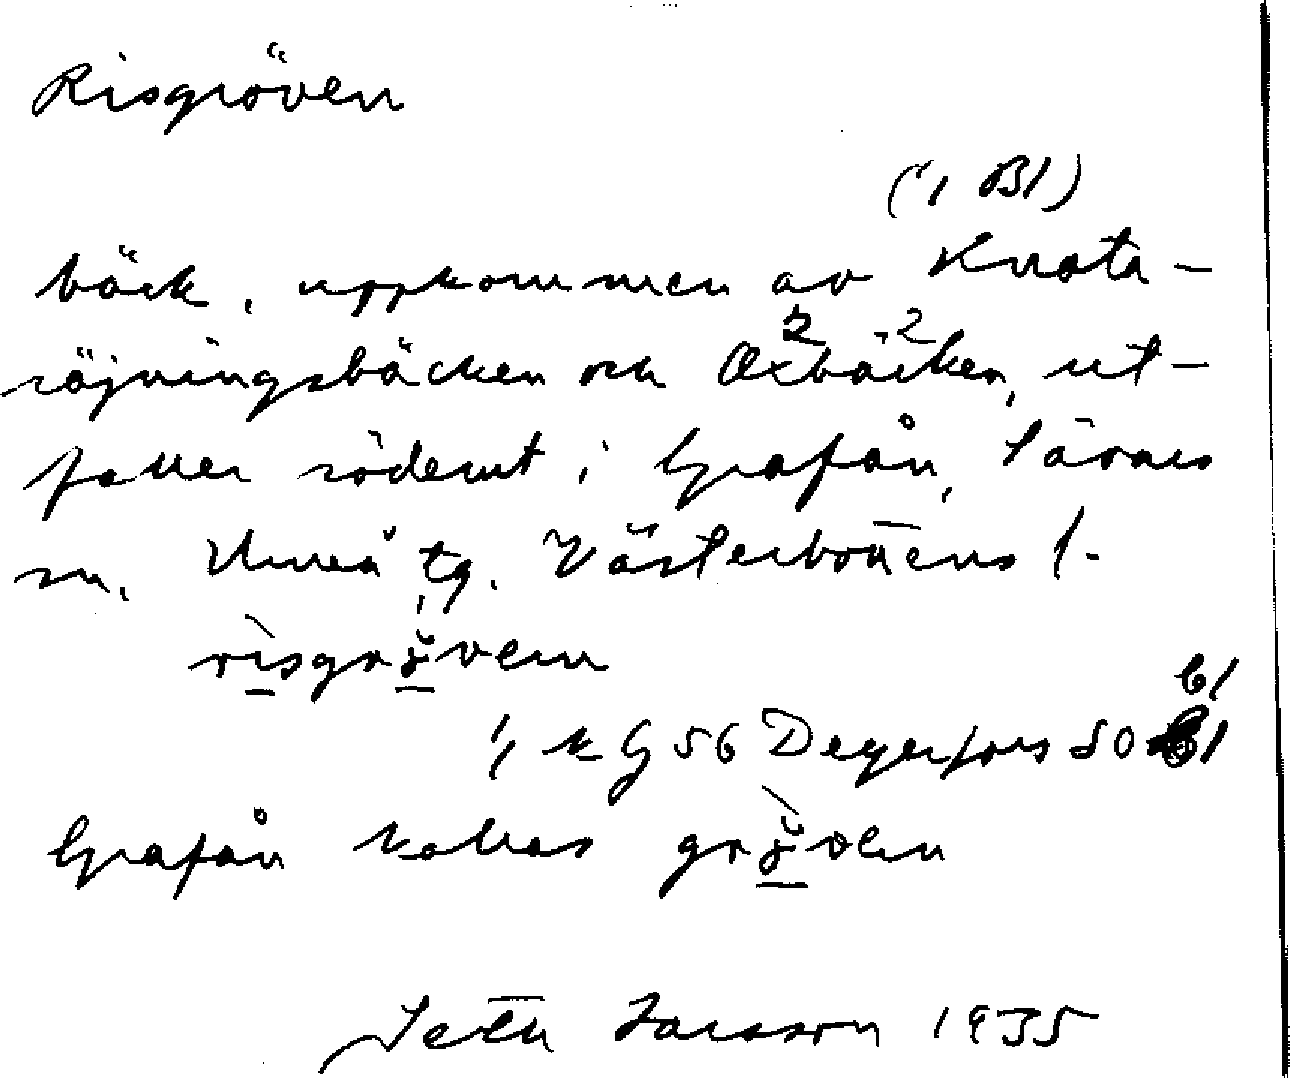 Risgröven
(1/1 B1)
bäck, uppkommen av Knota-
röjningsbäcken och Oxbäcken, ut-
faller söderut i Grafån, Sävars
sn. Umeå tg. Västerbottens l.
risgrövenn
1/1 k G 56 Degerfors SO 61
Grafån kallas gröven
Seth Larsson 1935